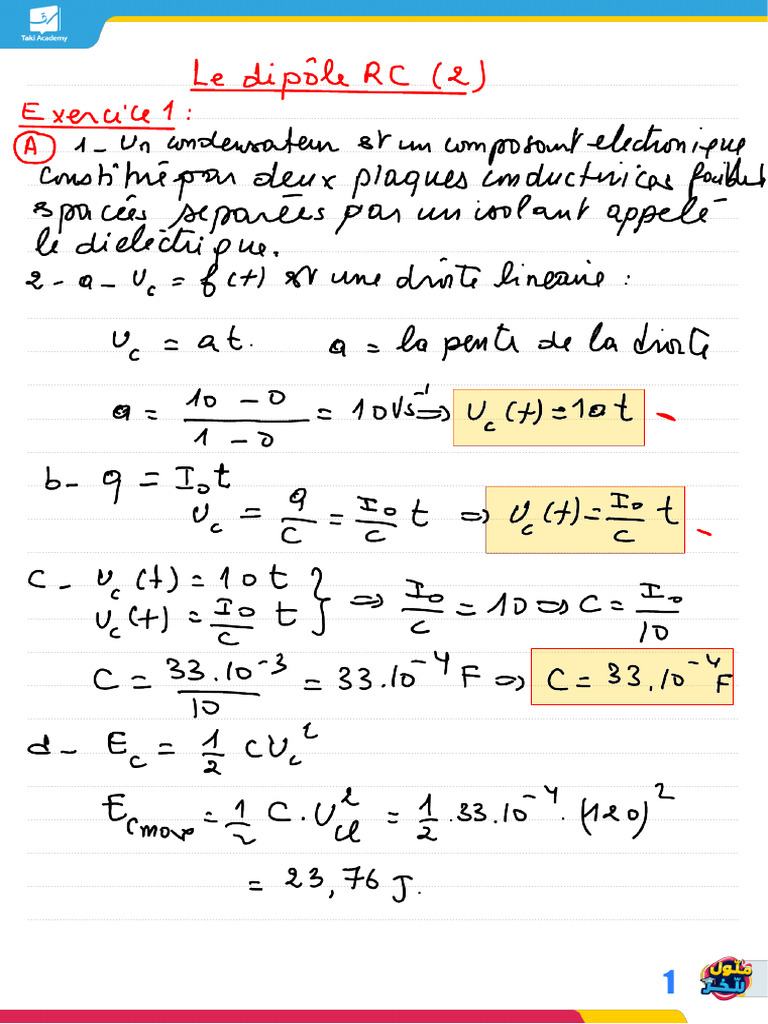 Taki Academy
Le dipôle RC (2)
Exercice 1 :
A 1 - Un condensateur est un composant electronique
constitué par deux plaques conductrices faiblement
espacées separées par un isolant appelé
le dielectrique.
2 - a - Uc = f(t) est une droite lineaire :
Uc = at. a = la pente de la droite
a = (10 - 0)/(1 - 0) = 10 Vs⁻¹ ⇒ Uc(t) = 10t
b - q = I₀t
Uc = q/C = I₀/C t ⇒ Uc(t) = I₀/C t
C - Uc(t) = 10t
Uc(t) = I₀/C t } ⇒ I₀/C = 10 ⇔ C = I₀/10
C = 33.10⁻³/10 = 33.10⁻⁴ F ⇒ C = 33.10⁻⁴ F
d - Ec = 1/2 CUc²
Ec = 1/2 C.U² = 1/2 .33.10⁻⁴.(120)²
= 23,76 J.
1